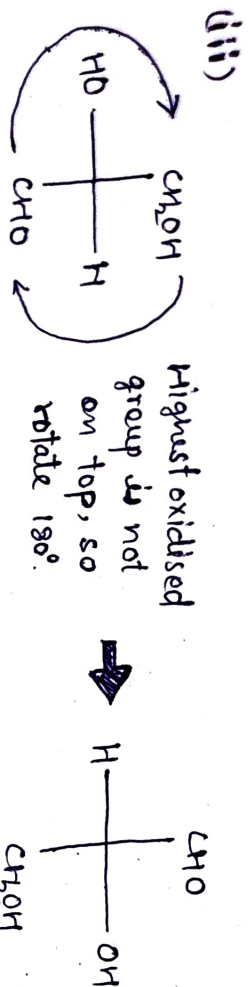 (iii)
CH2OH
HO H
CHO
Highest oxidised
group is not
on top, so
rotate 180°.
CHO
H OH
CH2OH